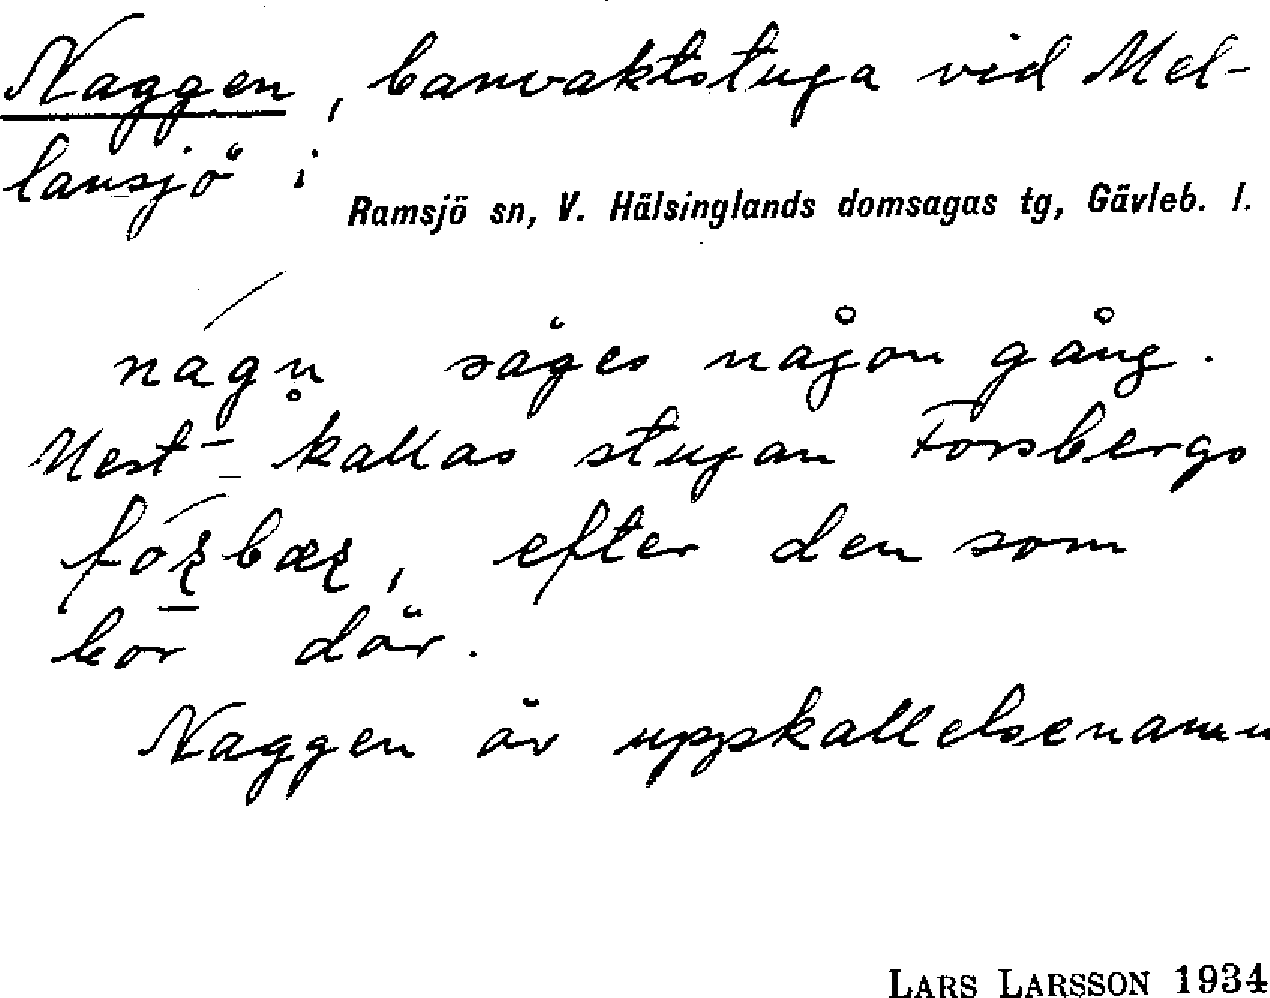 Naggen, banvaktstuga vid Mel-
lansjö i
Ramsjö sn, V. Hälsinglands domsagas tg, Gävleb. l.
nágn̥ säges någon gång.
Mest kallas stugan Forsbergs
efter den som
bor där.
Naggen är uppkallelsenamn
LARS LARSSON 1934